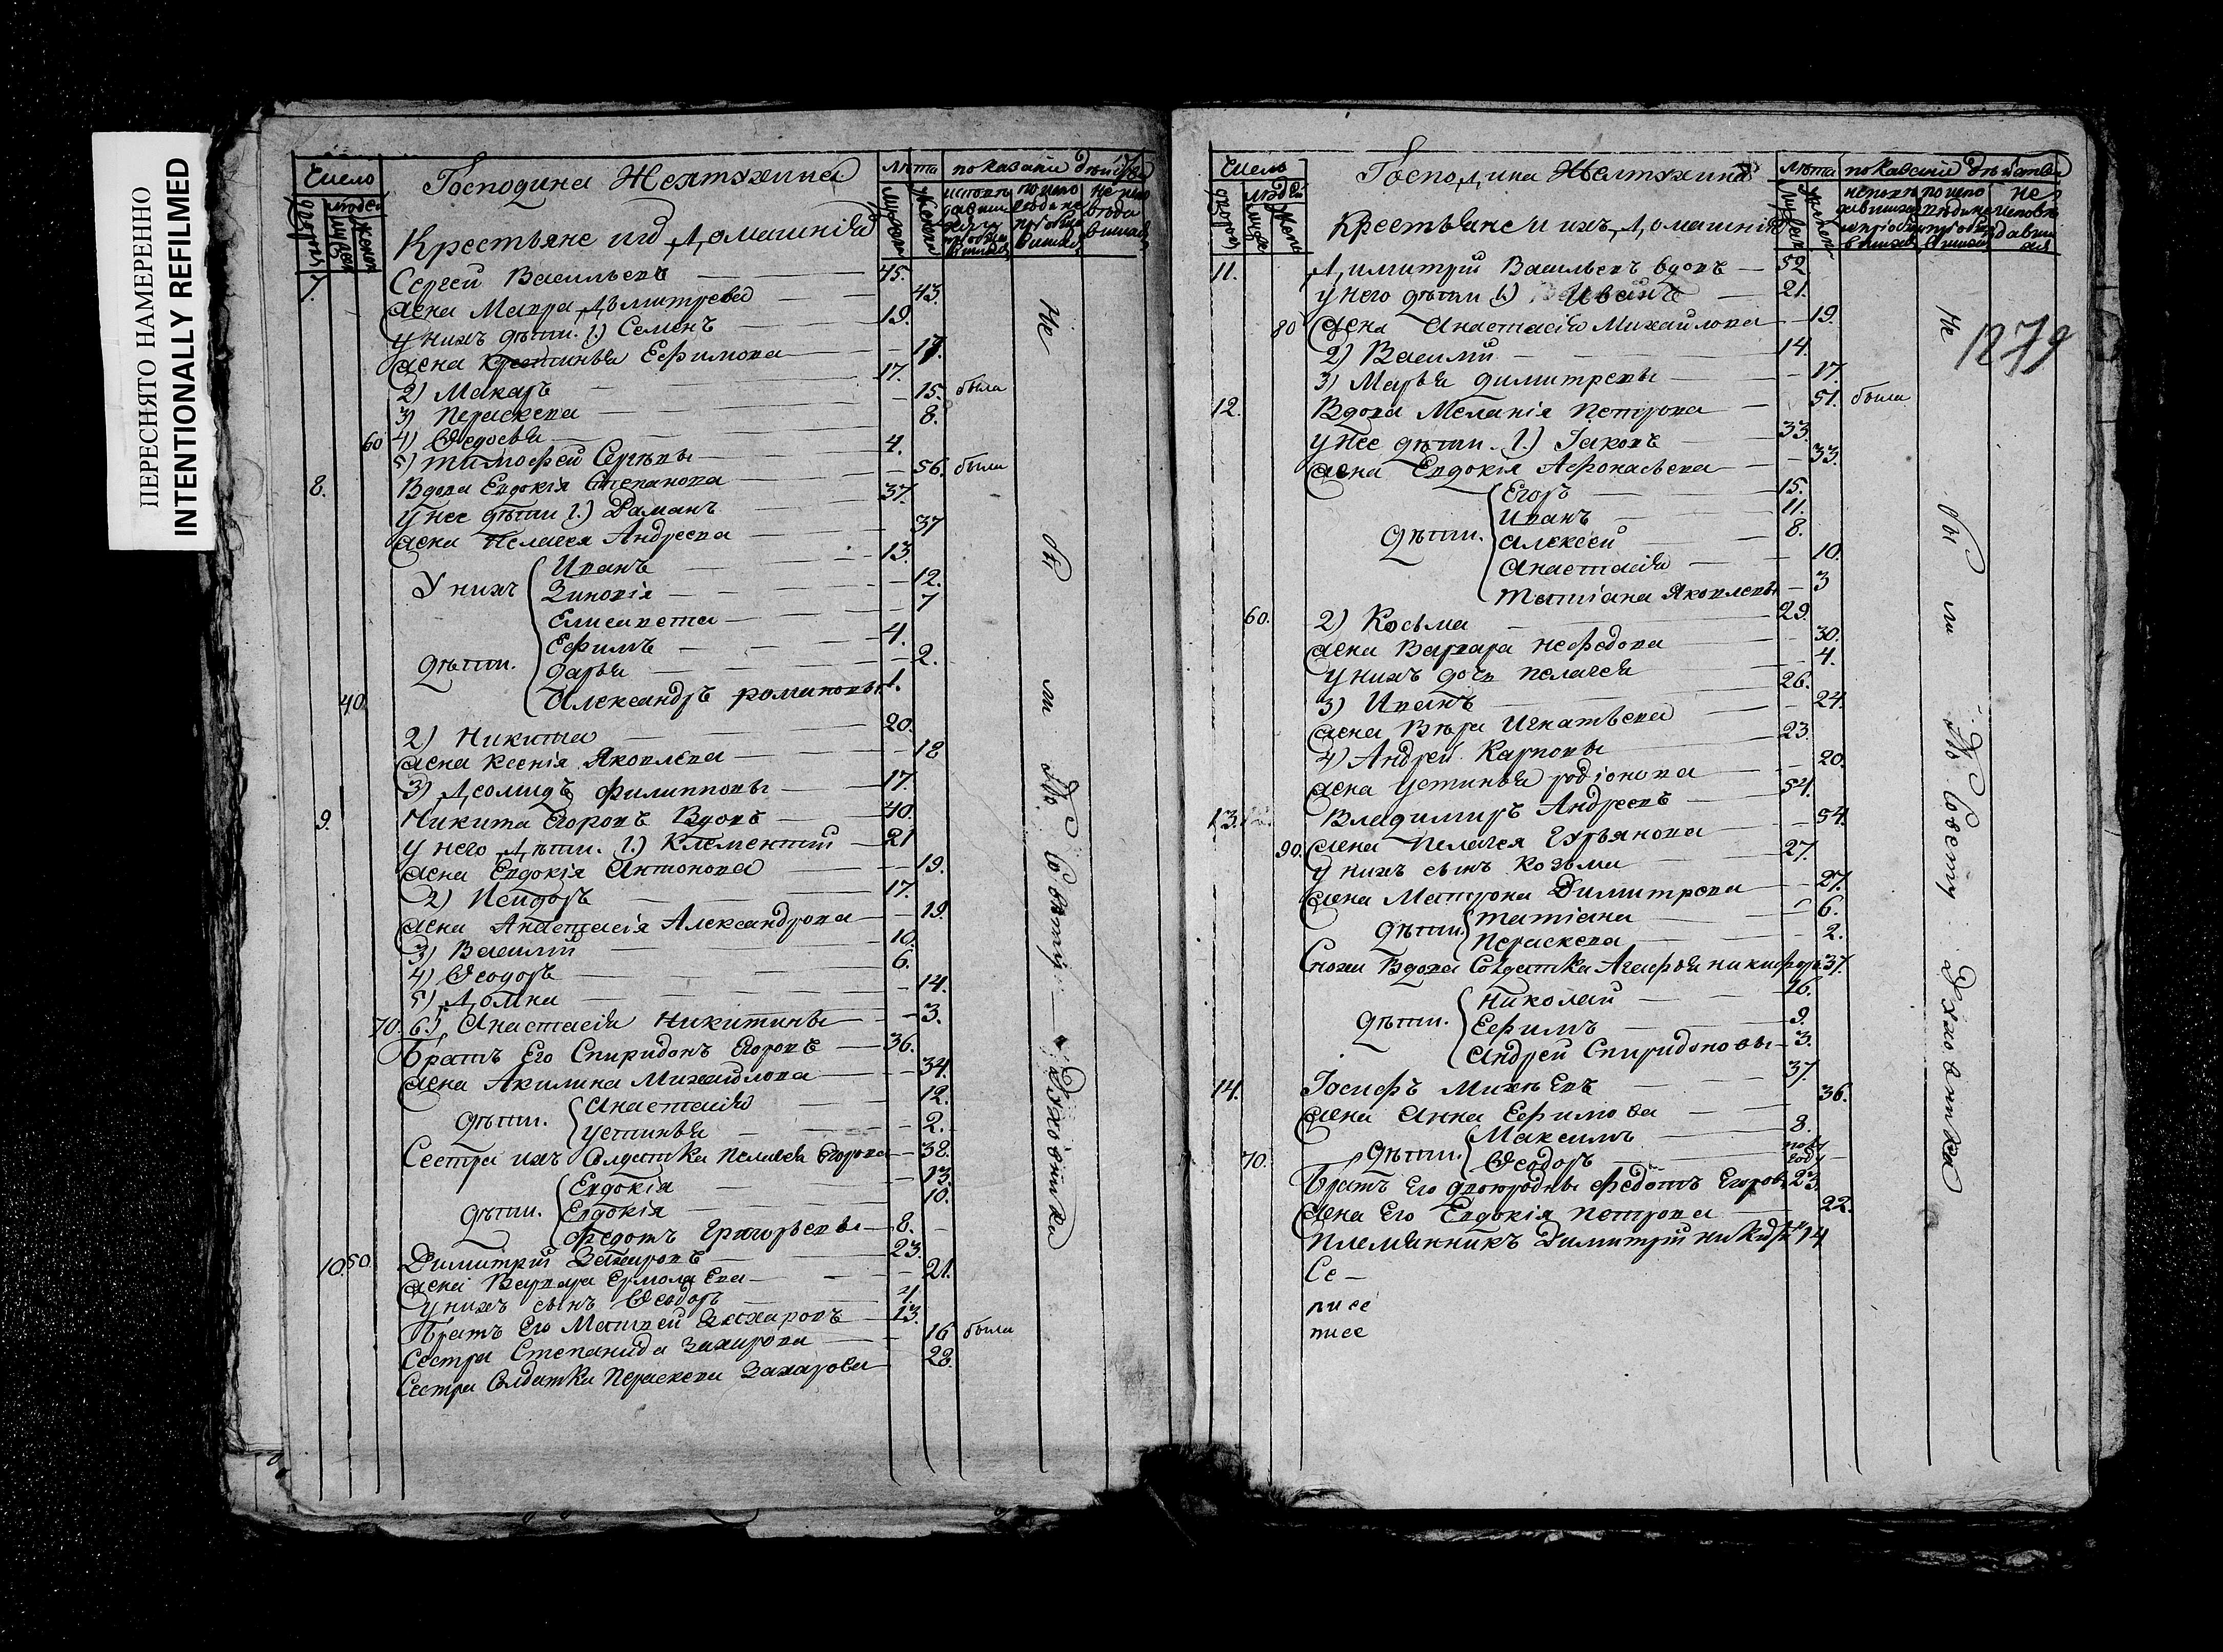 ПЕРЕСНЯТО НАМЕРЕННО
INTENTIONALLY REFILMED
Число
дворовъ
людей
мужеск
женск
Господина Желтухина
Крестьяне и их домашнія
лѣта
мужеск
женск
показаніи дѣйства
7. Сергей Васильевъ 45.
жена Мавра Дьмитрева 43.
у нихъ дѣти. 1.) Семенъ 19.
жена Крестинья Ефимова 17.
2) Макаръ 17.
3) Пераскева 15. была
60 4) Ѳедосья 8.
5) Тимофей Сергѣвы 4.
8. Вдова Евдокія Степанова 56. была
у нее дѣти 1.) Раманъ 37.
жена Пелагея Андреева 37
У нихъ
дѣти.
Иванъ 13.
Зиновія 12.
Елисавета 7
Ефимъ 4.
Дарья 2.
40. Александръ романовы 1.
2) Никита 20.
жена Ксенія Яковлева 18
3) Дсомидъ филипповы 17.
9. Никита Егоровъ Вдовъ 40.
у него Дѣти. 1.) Климентий 21
жена Евдокія Антонова 19.
2) Исидоръ 17.
жена Анастасія Александрова 19.
3) Василій 10.
4) Ѳеодоръ 6.
5) Домна 14.
70. 6.) Анастасія Никитины 3.
Братъ Его Спиридонъ Егоровъ 36.
жена Акилина Михаилова 34.
дѣти.
Анастасія 12.
Устинья 2.
Сестра ихъ Солдатка Пелагея Егорова 38.
дѣти.
Евдокія 13.
Евдокія 10.
Федотъ Григорьевы 8.
10. 50. Димитрій Захаровъ 23.
жена Варвара Ермолаева 21.
у нихъ сынъ Ѳеодоръ 4.
Братъ Его Матвей Захаровъ 13.
Сестра Степанида Захарова 16 была
Сестра Солдатка Пераскева Захарова 28.
Не бы ли По Совету Духовника
Число
дворовъ
людей
мужс
женс
Господина Желтухина
Крестьяне и ихъ Домашнія
лѣта
мужеск
женск
показаніи дѣйства
1279
11. Димитрій Васильевъ вдовъ 52.
у него дѣти 1.) Иванъ 21.
80 жена Анастасія Михаилова 19.
2) Василій 14.
3) Марья димитревы 17.
12. Вдова Меланія Петрова 51. была
у нее дѣти. 1.) Іаковъ 33.
жена Евдокія Афонасьева 33.
дѣти.
Егоръ 15.
Иванъ 11.
Алексей 8.
Анастасія 10.
Татіана Яковлевы 3
60. 2) Косьма 29.
жена Варвара Нефедова 30.
у нихъ дочь Пелагея 4.
3) Иванъ 26.
жена Вѣра Игнатьева 24.
4) Андрей Карповы 23.
жена Устинья родіонова 20.
13. Владимиръ Андреевъ 54.
90. жена Пелагея Гурьянова 54.
у нихъ сынъ Козьма 27.
жена Матрона Димитрева 27.
дѣти.
Татіана 6.
Пераскева 2.
Сноха Вдова Солдатка Агафья никифор 37.
дѣти.
Николай 16.
Ефимъ 9.
Андрей Спиридоновы 3.
14. Іосифъ Михѣевъ 37.
жена Анна Ефимова 36.
дѣти.
Максимъ 8.
70. Ѳеодоръ полу году
Братъ Его двоюродны Федотъ Егоровъ 23.
жена Его Евдокія Петрова 22.
Племянникъ Димитрій 14
Се
писе
писе
Не бы ли По Совету Духовника